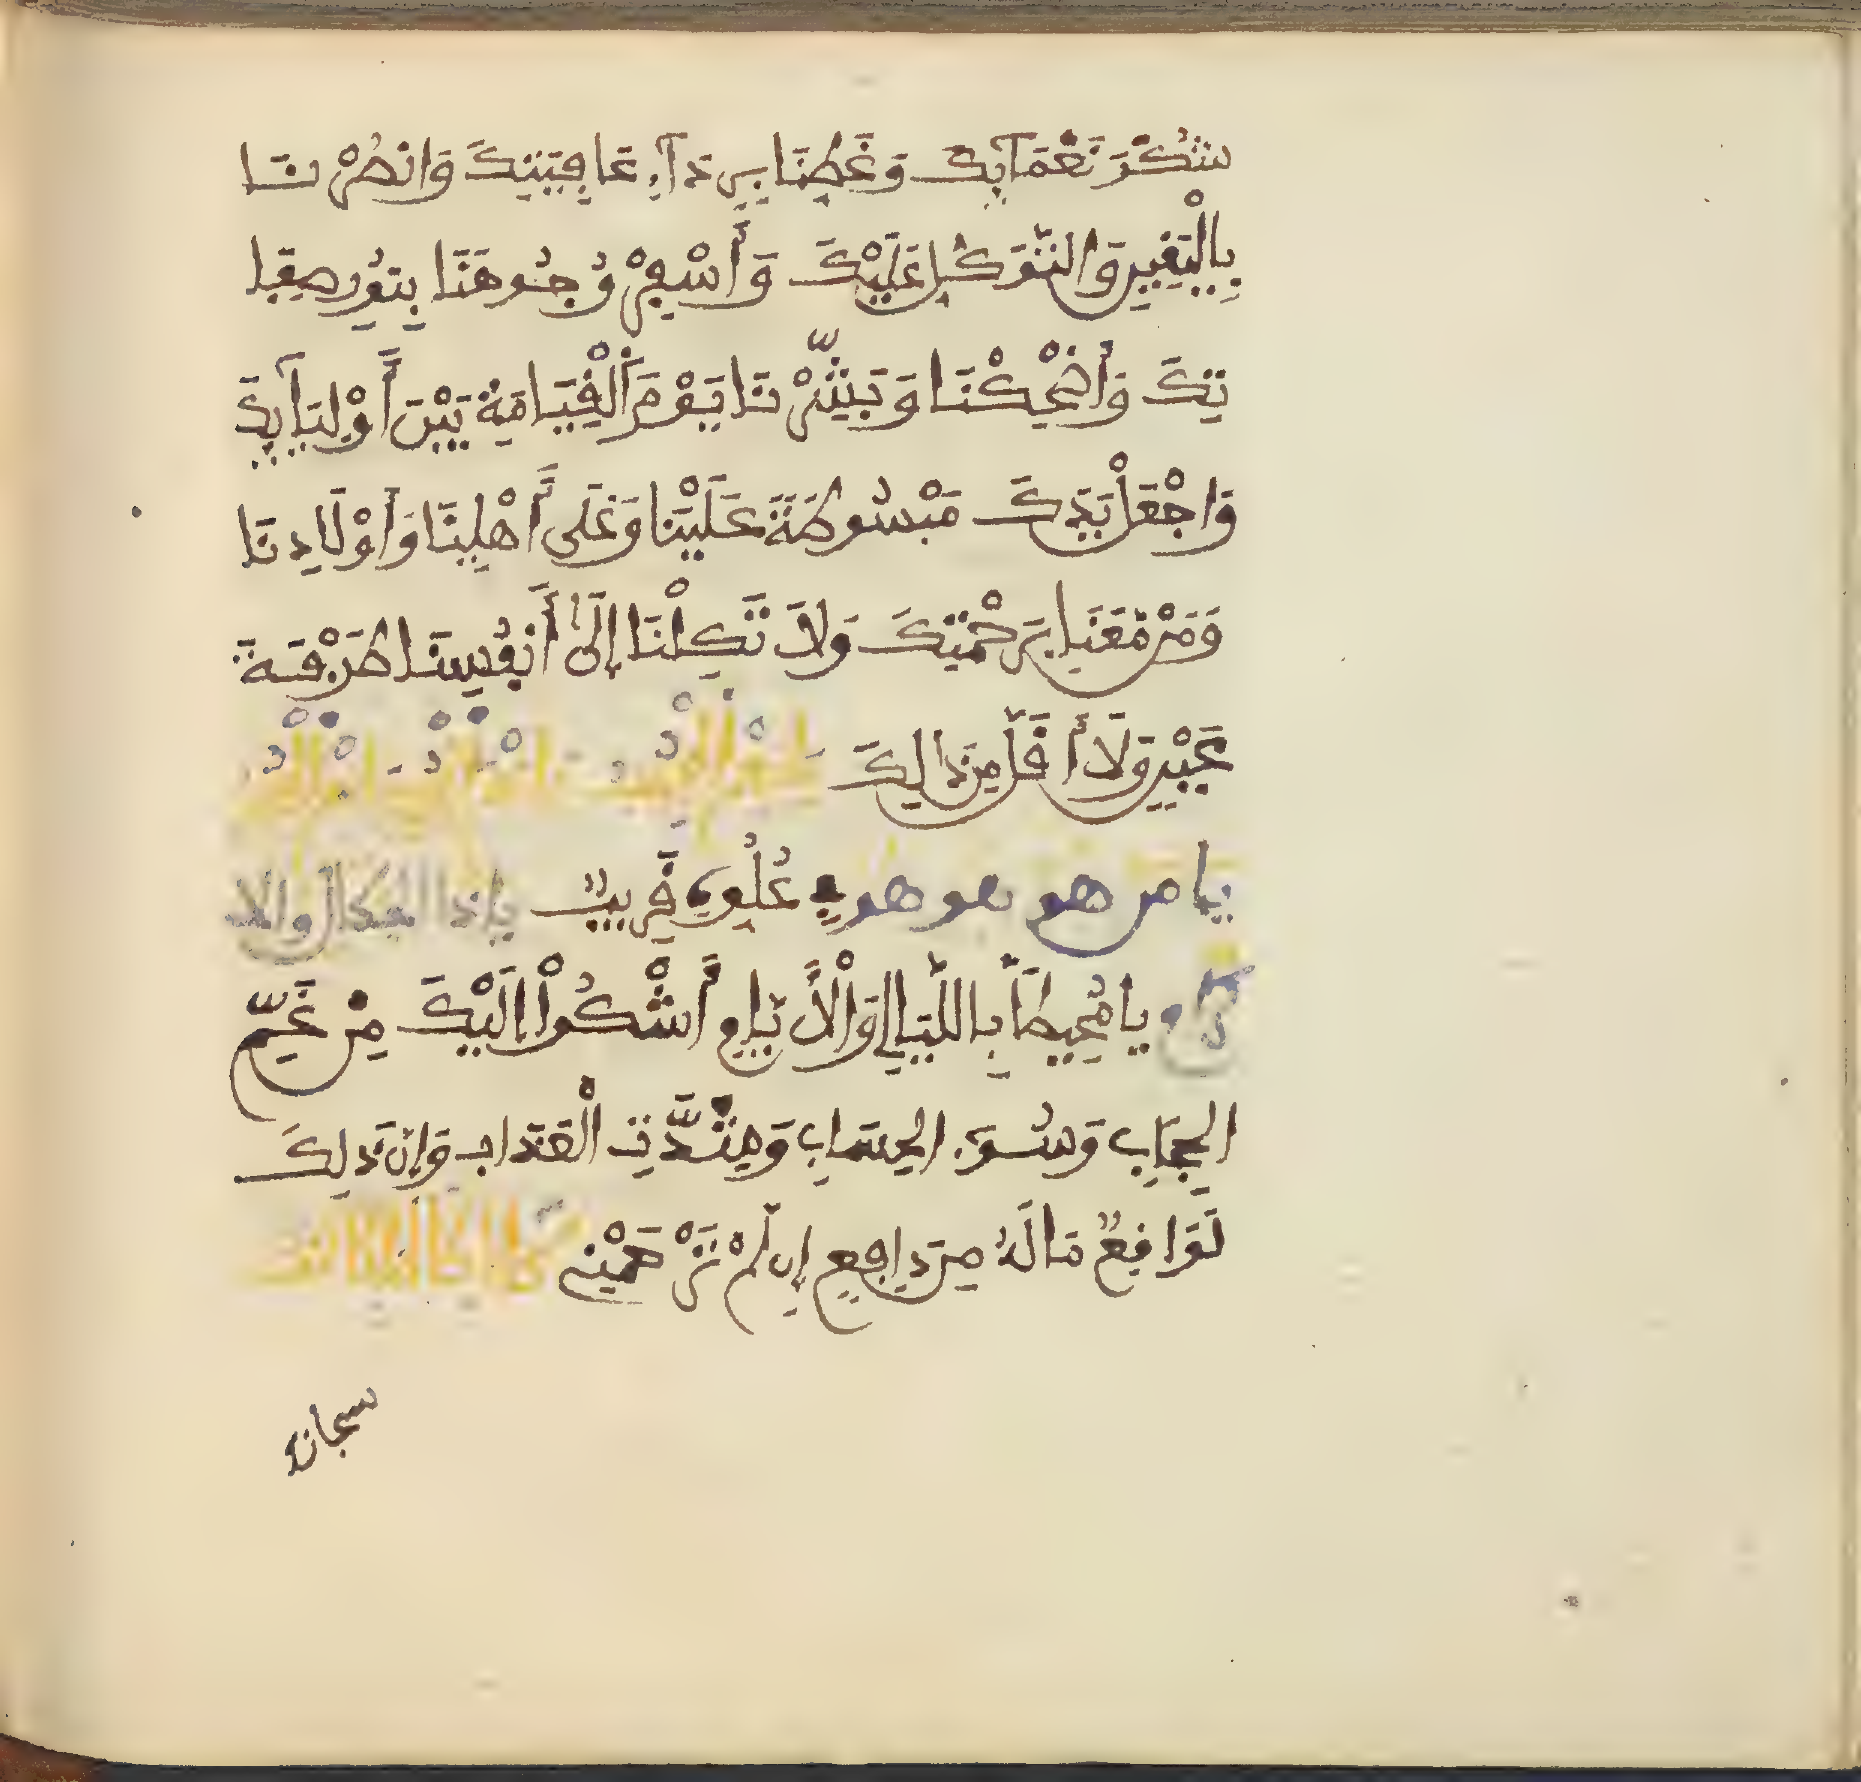 شُكْرَ نَعْمَآئِكَ وَغَطِّنَا بِرِدَآءِ عَافِيَتِكَ وَانْصُرْنَا
بِالْيَقِينِ وَالتَّوَكُّلِ عَلَيْكَ وَأَسْفِرْ وُجُوهَنَا بِنُورِ صِفَا
تِكَ وَأَضْحِكْنَا وَبَشِّرْنَا يَوْمَ الْقِيَامَةِ بَيْنَ أَوْلِيَآئِكَ
وَاجْعَلْ يَدَكَ مَبْسُوطَةً عَلَيْنَا وَعَلَى أَهْلِينَا وَأَوْلَادِنَا
وَمَنْ مَّعَنَا بِرَحْمَتِكَ وَلَا تَكِلْنَا إِلَىٰ أَنفُسِنَا طَرْفَةَ
عَيْنٍ وَلَا أَقَلَّ مِن ذَالِكَ
يا من هو هو هو فِي عُلُوِّهِ قَرِيبٌ ياذا الجلال والا
كرام يا مُحِيطاً باللَّيَالِي وَالْأَيَّامِ أَشْكُوا إِلَيْكَ مِنْ غَمِّ
الحِجَابِ وَسُوءِ الحِسَابِ وَشِدَّتِ الْعَذَابِ وَإِنَّ ذَلِكَ
لَوَاقِعٌ مَا لَهُ مِن دَافِعٍ إِن لَّمْ تَرْحَمْنِي
سبحانك